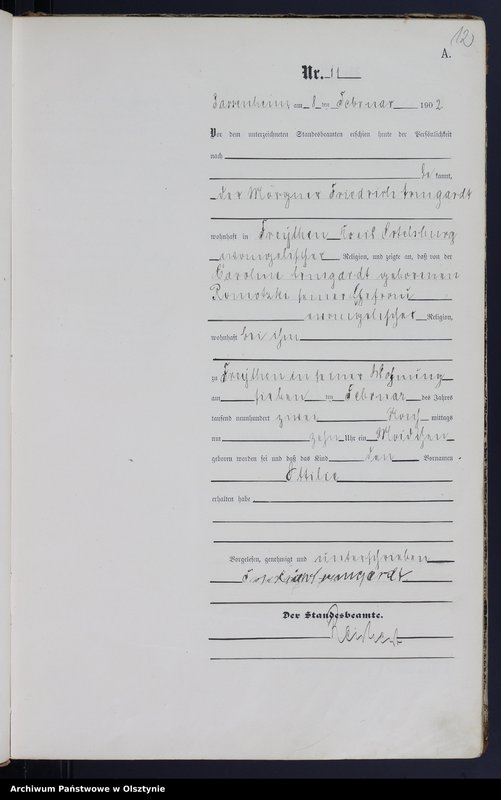 12
A.
Nr. 11
Passenheim am 8 ten Februar 1902
Vor dem unterzeichneten Standesbeamten erschien heute der Persönlichkeit
nach
be kannt,
der Friedrich Ermgardt
wohnhaft in Freythen Kreis Ortelsburg
evangelischer Religion, und zeigte an, daß von der
Caroline Ermgardt geborenen
seiner Ehefrau
evangelischer Religion,
wohnhaft bei ihm
zu Freythen in seiner Wohnung
am sieben ten Februar des Jahres
tausend neunhundert zwei Nach mittags
um zehn Uhr ein Mädchen
geboren worden sei und daß das Kind den Vornamen
Ottilie
erhalten habe.
Vorgelesen, genehmigt und unterschrieben
Friedrich Ermgardt
Der Standesbeamte.
Archiwum Państwowe w Olsztynie